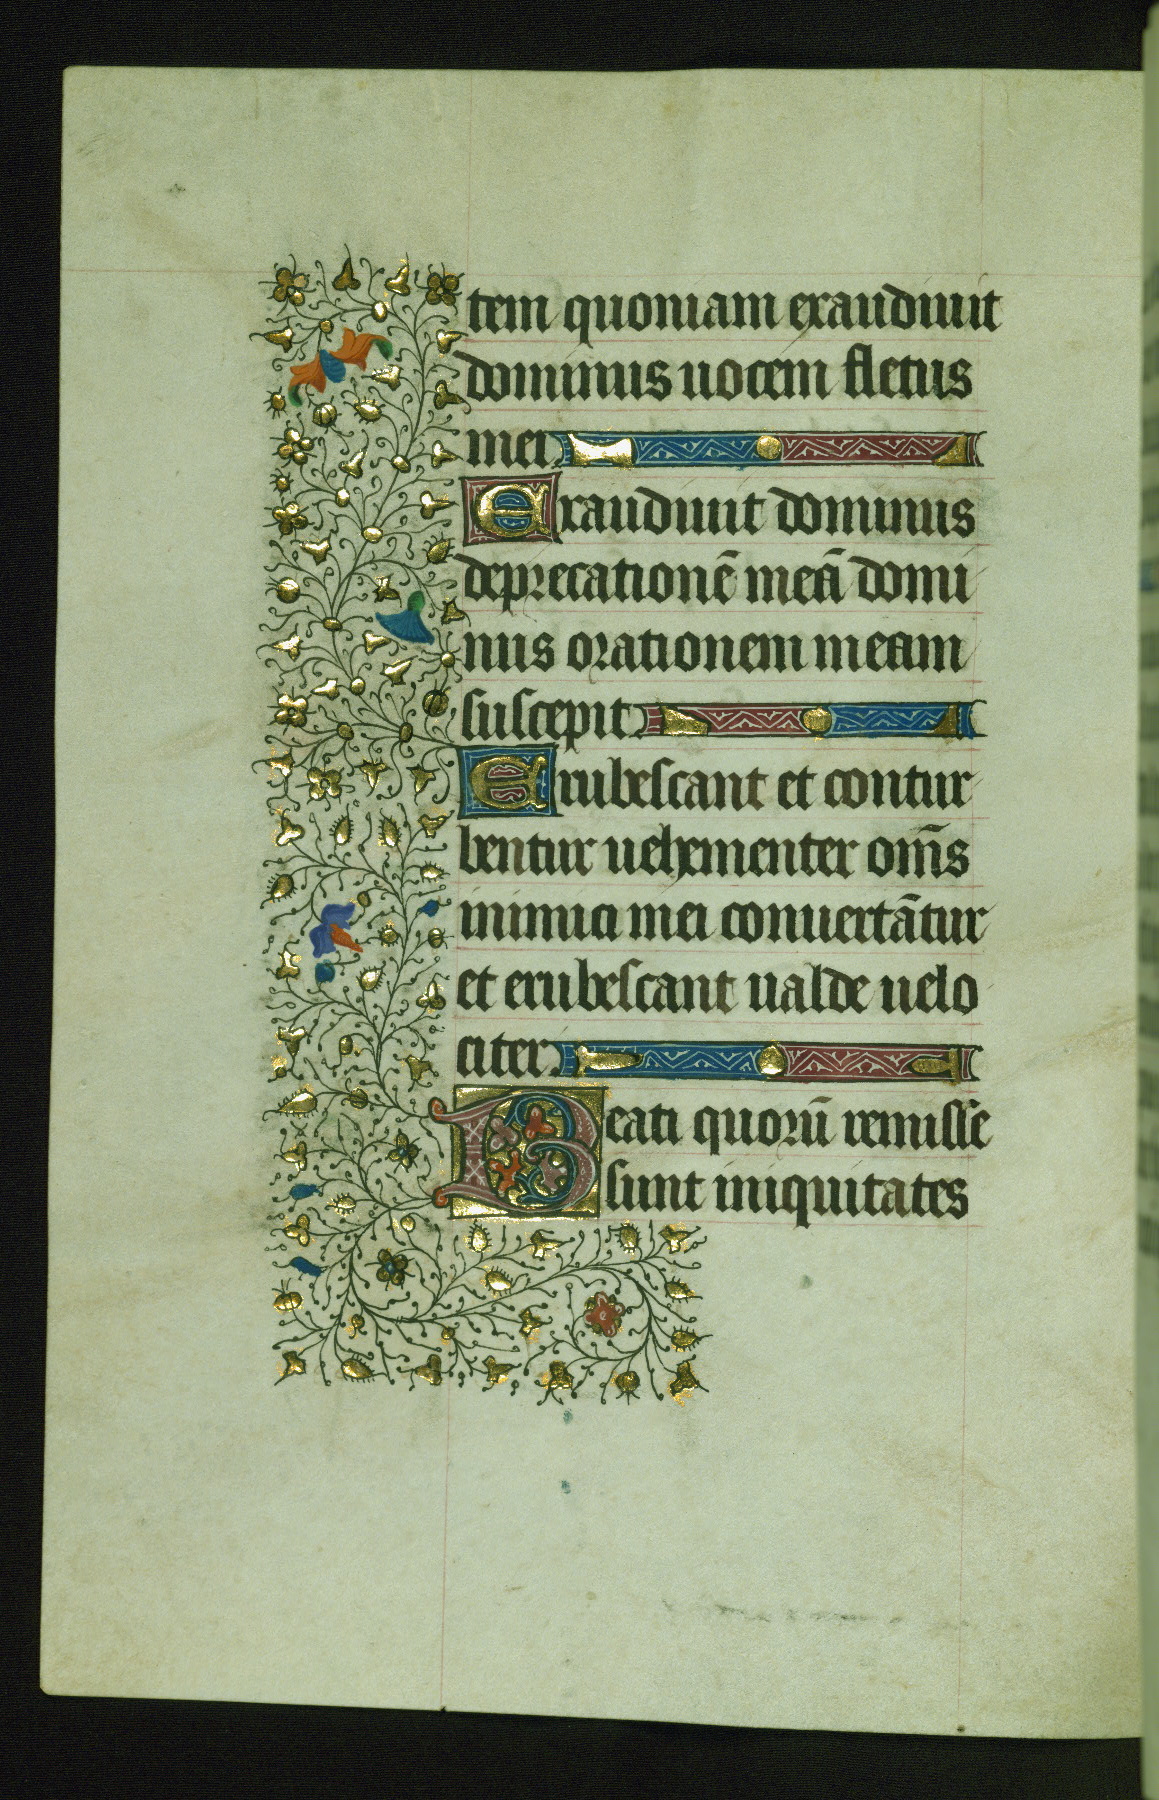 tem quoniam exaudiuit
dominus uocem fletus
mei
Exaudiuit dominus
deprecationē meā domi
nus orationem meam
suscepit
Erubescant et contur
bentur uehementer om̄s
inimici mei conuertātur
et erubescant ualde uelo
citer
Beati quorū remisse
sunt iniquitates